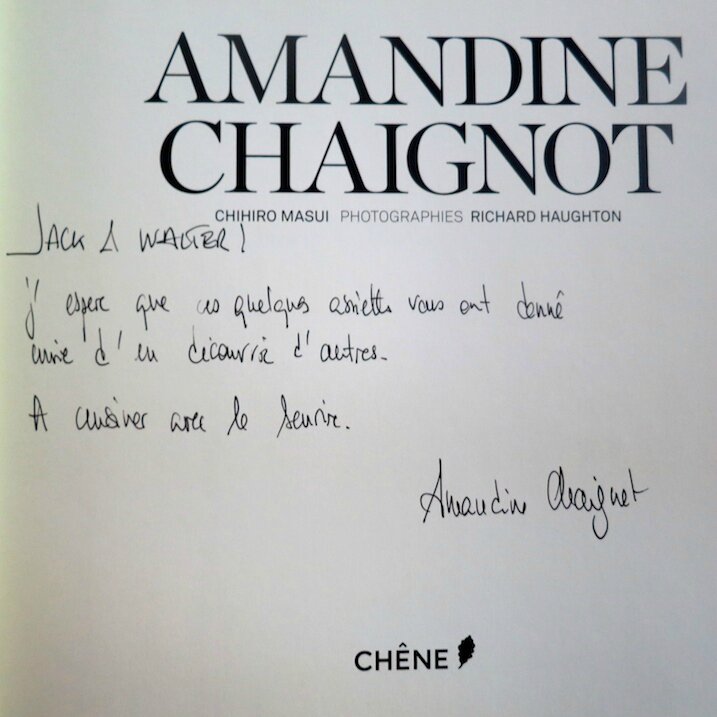 AMANDINE
CHAIGNOT
CHIHIRO MASUI PHOTOGRAPHIES RICHARD HAUGHTON
JACK & WALTER!
j'espere que ces quelques assiettes vous ont donné
envie d'en découvrir d'autres.
A cuisiner avec le sourire.
Amandine Chaignot
CHÊNE